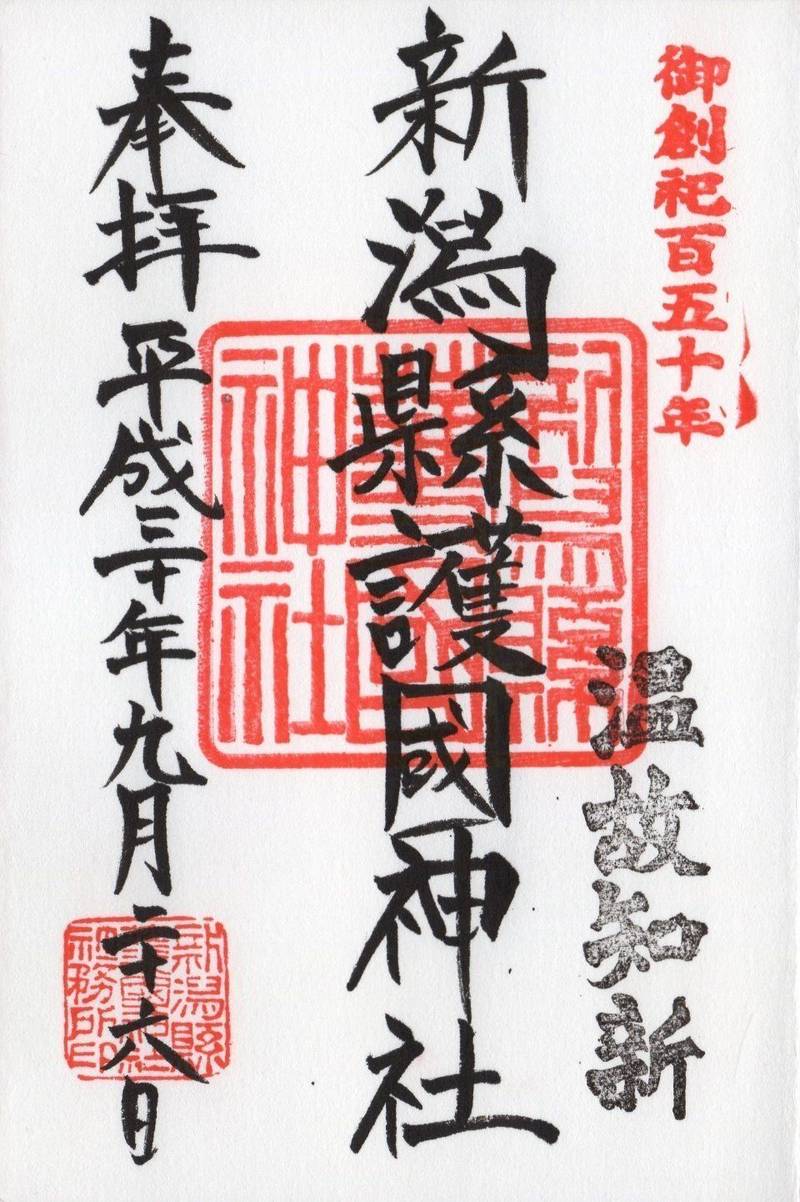 御創祀百五十年
温故知新
新潟縣護國神社
新潟縣護國神社
奉拝 平成三十年九月二十六日
新潟縣護國神社社務所印